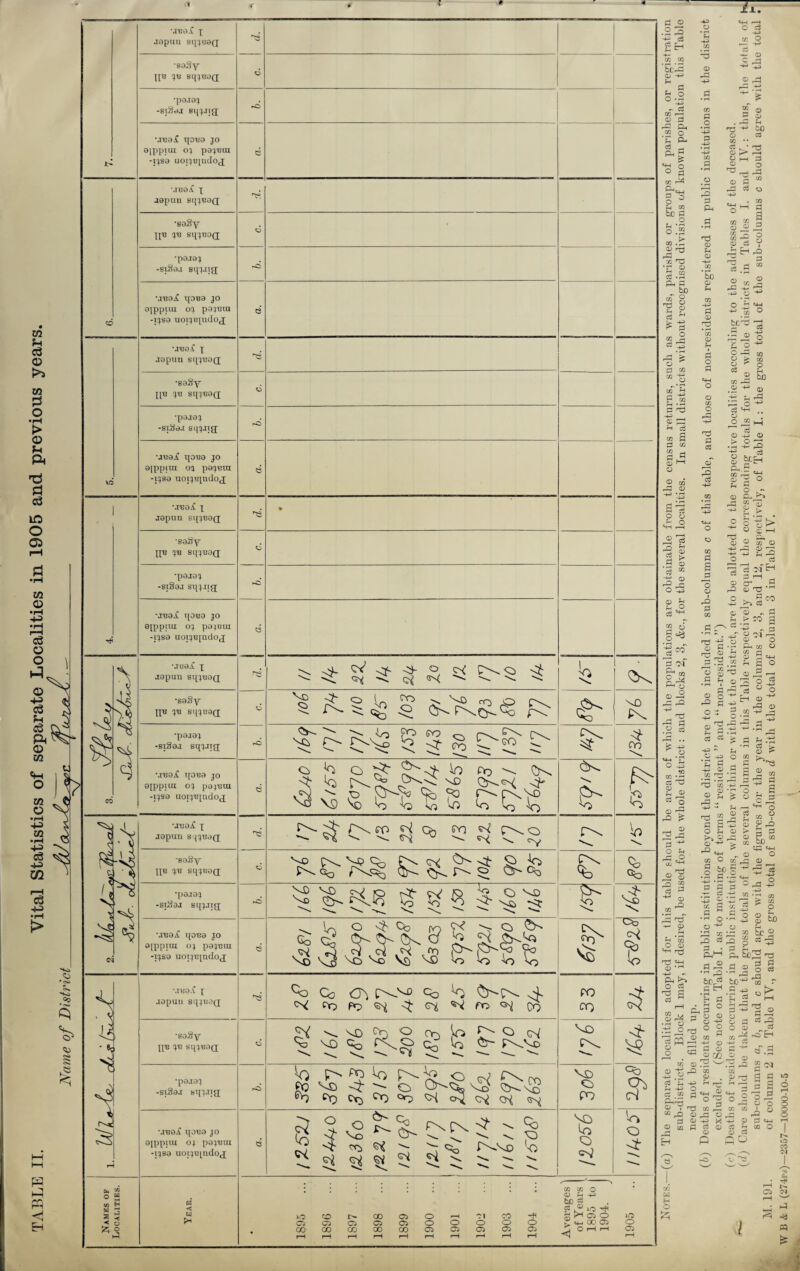 TABLE II. Vital Statistics of separate Localities in 1905 and previous years.
Name of District Wantage Rural.
NAMES OF LOCALITIES. 1. Whole district 2. Wantage Rural Sub. district 3. Ilsley Sub. district 4. 5. 6. 7.
YEAR. Population estimated to middle of each year. Births registered. Deaths at all Ages. Deaths under 1 year. Population estimated to middle of each year. Births registered. Deaths at all Ages. Deaths under 1 year. Population estimated to middle of each year. Births registered. Deaths at all Ages. Deaths under 1 year. Population estimated to middle of each year. Births registered. Deaths at all Ages. Deaths under 1 year. Population estimated to middle of each year. Births registered. Deaths at all Ages. Deaths under 1 year. Population estimated to middle of each year. Births registered. Deaths at all Ages. Deaths under 1 year. Population estimated to middle of each year. Births registered. Deaths at all Ages. Deaths under 1 year.
a. b. c. d. a. b. c. d. a. b. c. d. a. b. c. d. a. b. c. d. a. b. c. d. a. b. c. d.
1895 ... 12521 335 182 28 6281 166 76 17 6240 169 106 11
1896 ... 12440 367 161 38 6285 196 87 24 6155 171 74 14
1897 ... 12360 343 186 39 6290 172 76 17 6070 171 110 22
1898 ... 12279 315 173 27 6294 150 88 13 5984 165 85 14
1899 ... 12198 307 200 46 6299 154 97 22 5899 153 103 24
1900 ... 12117 295 183 28 6303 152 92 8 5814 143 91 20
1901 ... 11817 280 155 25 5952 150 79 13 5865 130 76 12
1902 ... 11714 262 197 39 5921 145 104 27 5793 117 93 12
1903 ... 11611 297 170 27 5890 160 90 17 5721 137 80 10
1904 ... 11508 263 162 34 5859 146 85 20 5649 117 77 14
Averages of Years 1895 to 1904. 12056 306 176 33 6137 159 87 17 5919 147 89 15
1905 .. 11405 298 164 24 5828 164 88 15 5577 134 76 9.
NOTES.—(a) The separate localities adopted for this table should be areas of which the populations are obtainable from the census returns, such as wards, parishes or groups of parishes, or registration
sub-districts. Block 1 may, if desired, be used for the whole district: and blocks 2, 3, &c., for the several localities. In small districts without recognised divisions of known population this Table
need not be filled up.
(b) Deaths of residents occurring in public institutions beyond the district are to be included in sub-columns c of this table, and those of non-residents registered in public institutions in the district
excluded. (See note on Table I. as to meaning of terms “resident” and “non-resident.”)
(c) Deaths of residents occurring in public institutions, whether within or without the district, are to be allotted to the respective localities according to the addresses of the deceased.
(d) Care should be taken that the gross totals of the several columns in this Table respectively equal the corresponding totals for the whole districts in Tables I. and IV.: thus, the totals of
sub-columns a, b, and c should agree with the figures for the year in the columns 2, 3, and 12, respectively, of Table I.: the gross total of the sub-columns c should agree with the total
of column 2 in Table IV., and the gross total of sub-columns d with the total of column 3 in Table IV.
M. 191.
W B & L (274rs)—2357—10000-10-5